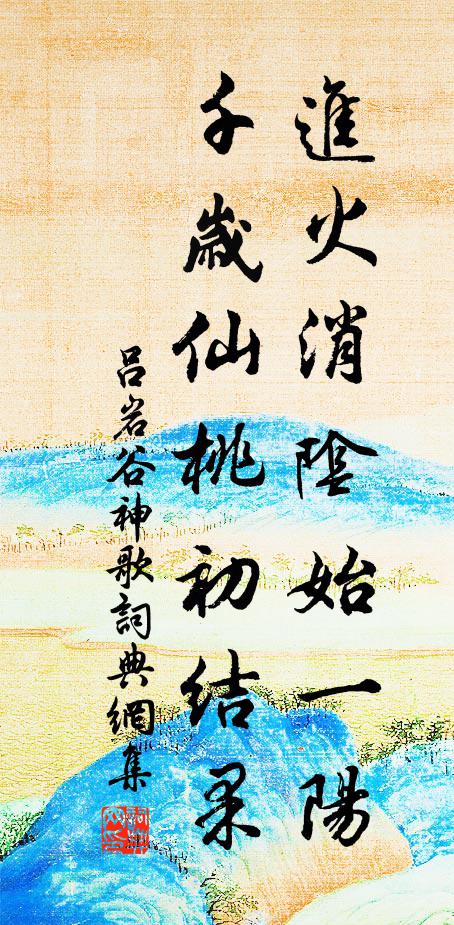 進火消陰始一陽
千歲仙桃初結果
吕岩谷神歌詞典網集